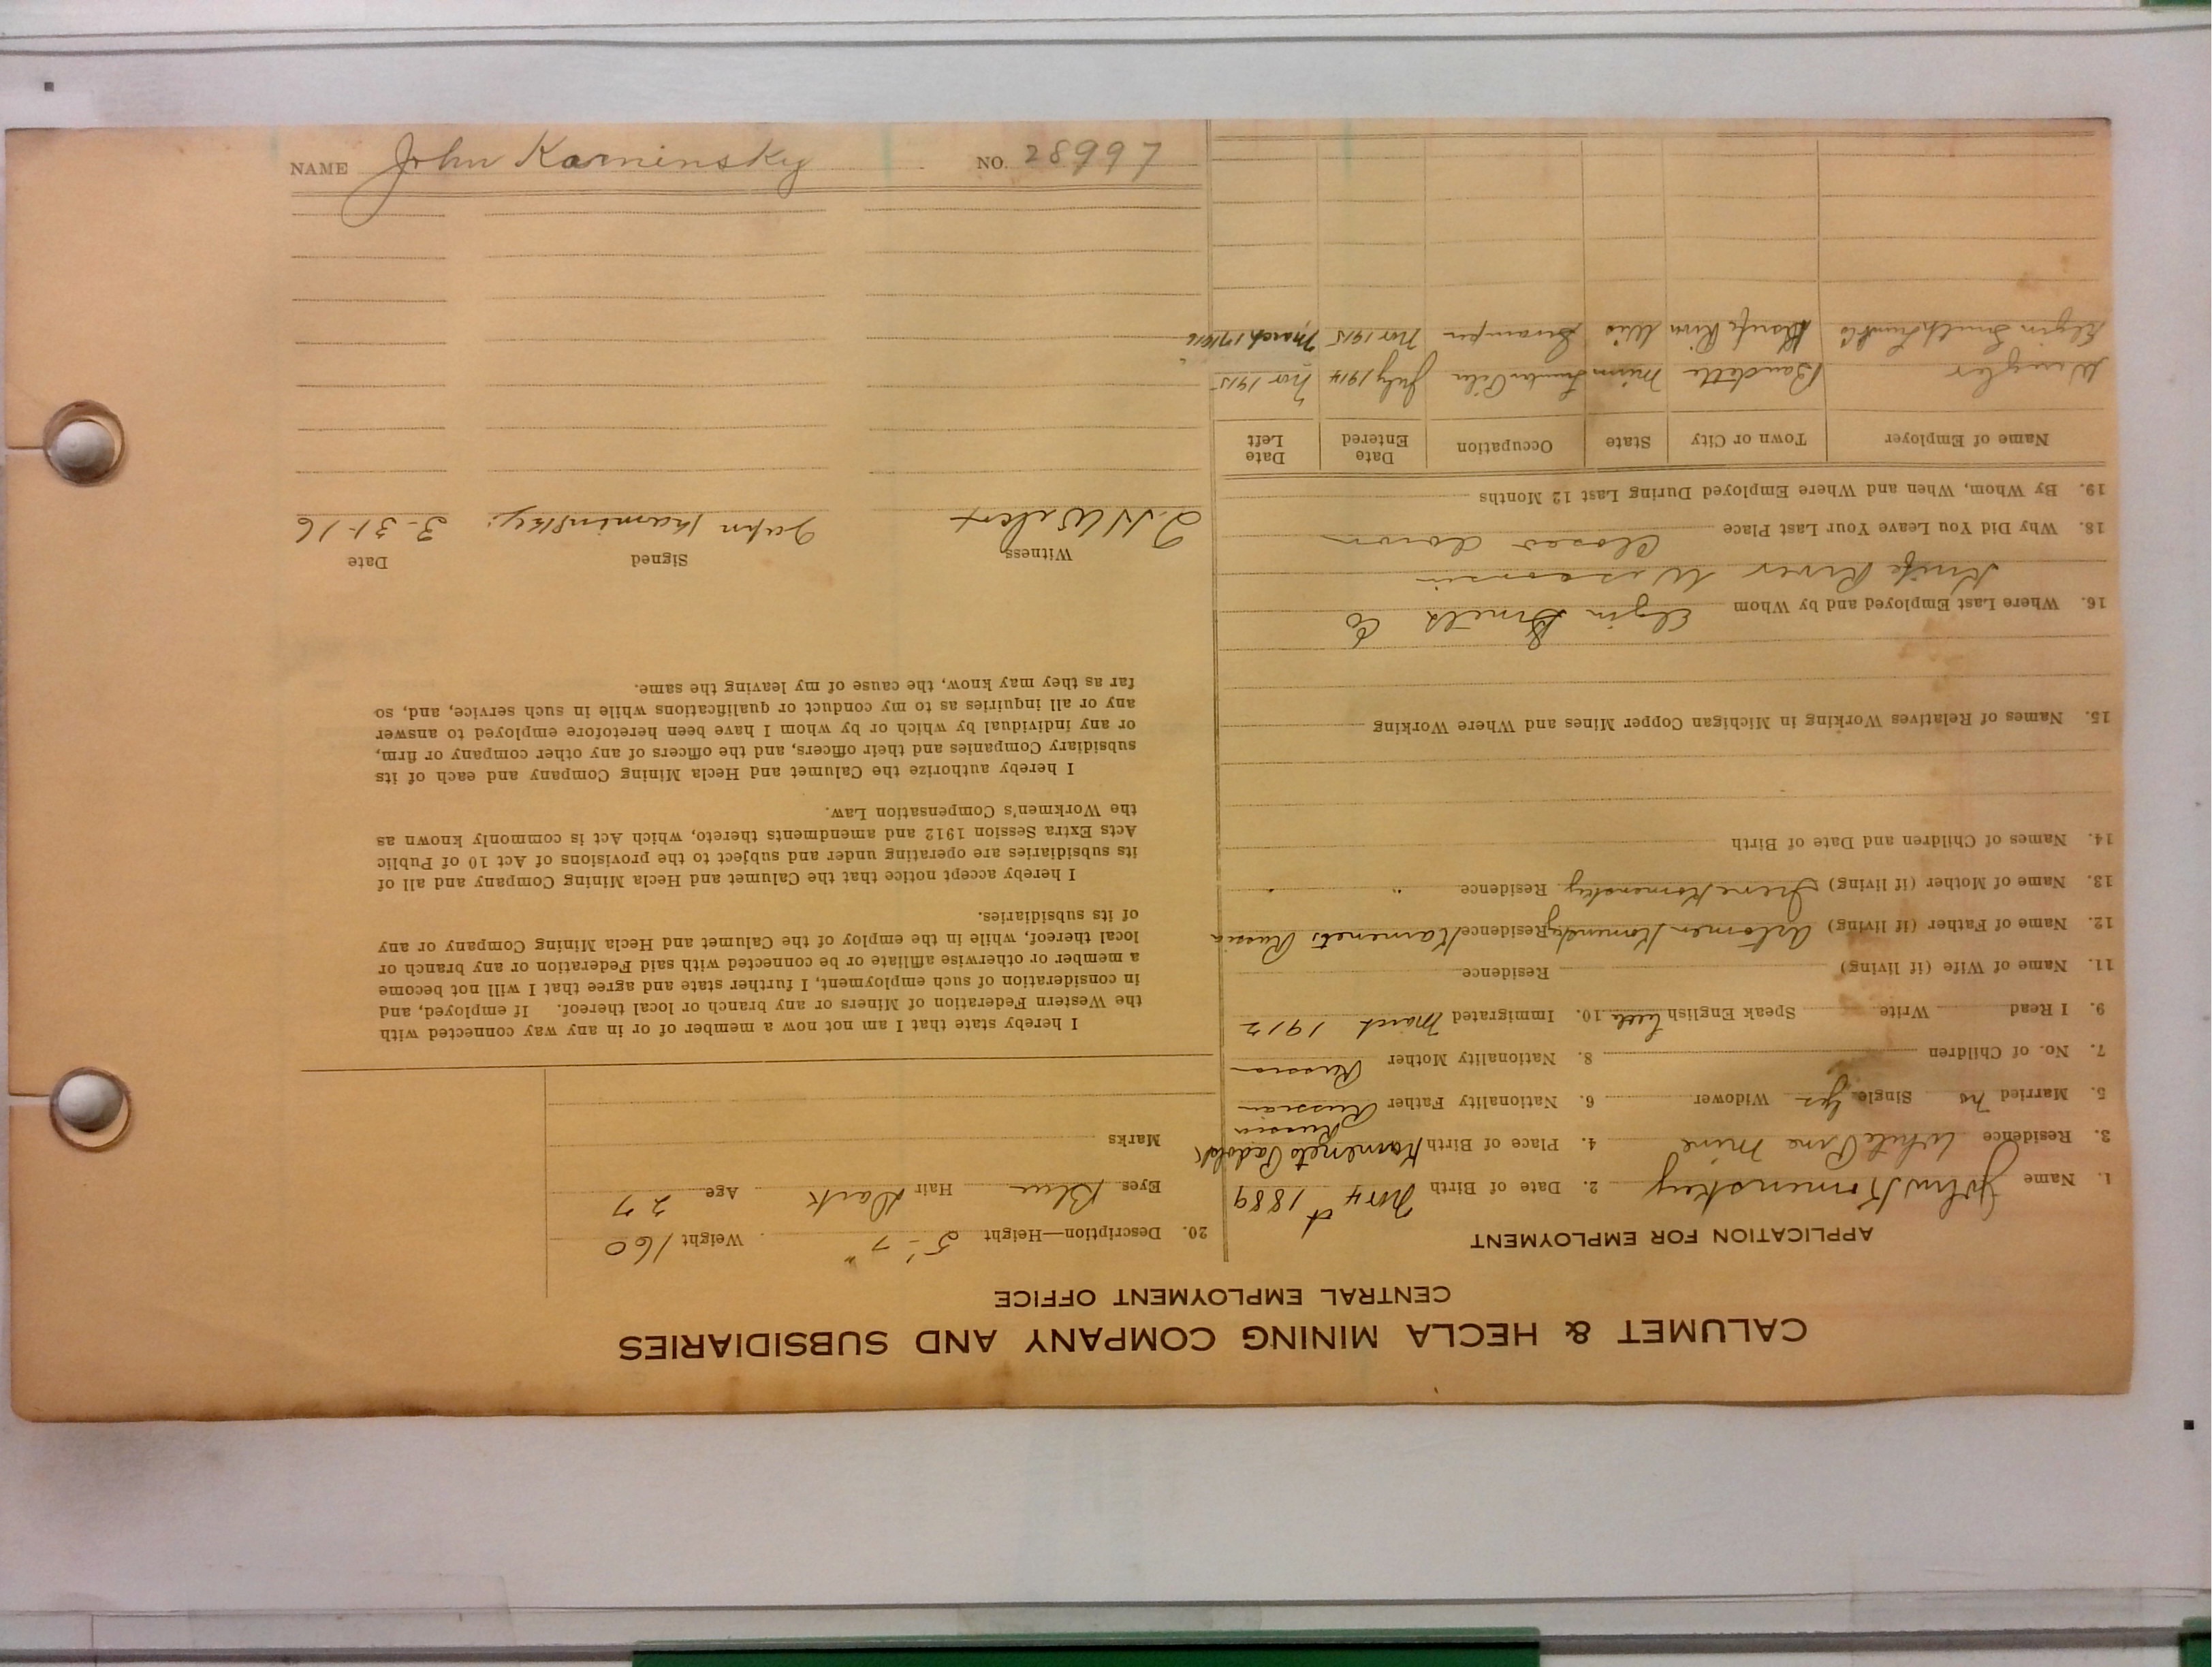 CALUMET & HECLA MINING COMPANY AND SUBSIDIARIES
CENTRAL EMPLOYMENT OFFICE
APPLICATION FOR EMPLOYMENT
1. Name John Komenskey 2. Date of Birth Nov 4th 1889
3. Residence White Pine Mine 4. Place of Birth Kamenets Padolsk Russia
5. Married no Single Yes Widower 6. Nationality Father Russian
7. No. of Children 8. Nationality Mother Russian
9. I Read Write Speak English little 10. Immigrated March 1912
11. Name of Wife (if living) Residence
12. Name of Father (if living) Residence Kamenets Russia
13. Name of Mother (if living) Irene Komenskey Residence " "
14. Names of Children and Date of Birth
15. Names of Relatives Working in Michigan Copper Mines and Where Working
16. Where Last Employed and by Whom Elgin Smith Co
Knife River Wisconsin
18. Why Did You Leave Your Last Place Closed down
19. By Whom, When and Where Employed During Last 12 Months
Name of Employer Town or City State Occupation Date Entered Date Left
Baudette Minn Lumber Piler July 1914 Nov 1915
Elgin Smith Knife River Wis Swamper Nov 1915 March 17 1916
20. Description—Height 5'-7" Weight 160
Eyes Blue Hair Dark Age 27
Marks
I hereby state that I am not now a member of or in any way connected with
the Western Federation of Miners or any branch or local thereof. If employed, and
in consideration of such employment, I further state and agree that I will not become
a member or otherwise affiliate or be connected with said Federation or any branch or
local thereof, while in the employ of the Calumet and Hecla Mining Company or any
of its subsidiaries.
I hereby accept notice that the Calumet and Hecla Mining Company and all of
its subsidiaries are operating under and subject to the provisions of Act 10 of Public
Acts Extra Session 1912 and amendments thereto, which Act is commonly known as
the Workmen's Compensation Law.
I hereby authorize the Calumet and Hecla Mining Company and each of its
subsidiary Companies and their officers, and the officers of any other company or firm,
or any individual by which or by whom I have been heretofore employed to answer
any or all inquiries as to my conduct or qualifications while in such service, and, so
far as they may know, the cause of my leaving the same.
Witness Signed Date
3-31-16
NAME John Kaminsky NO. 28997